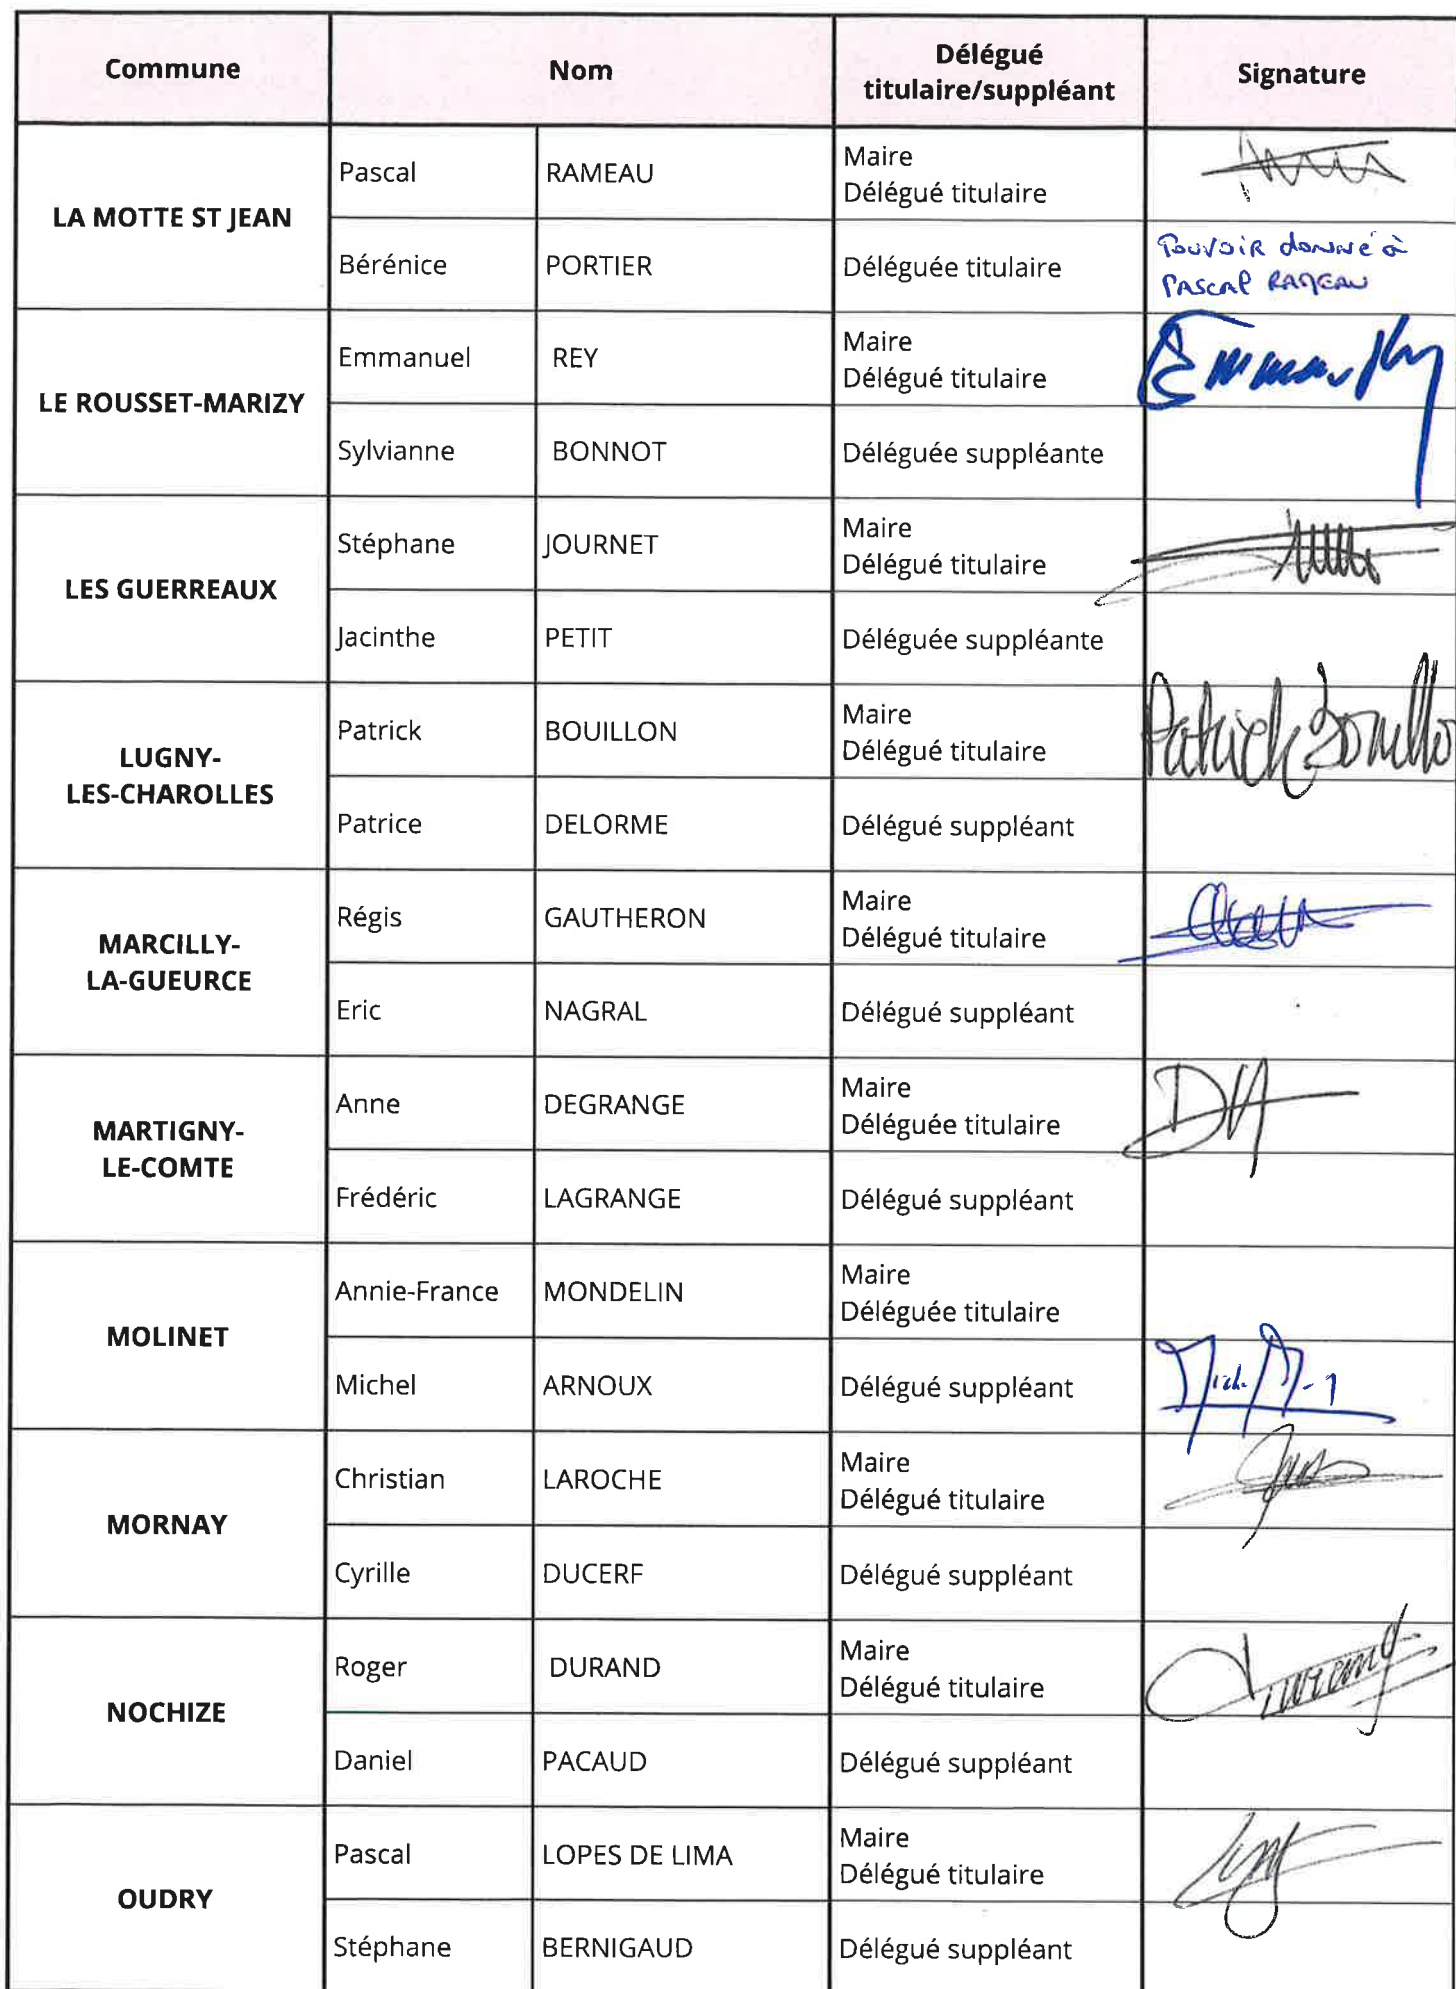 Commune Nom Délégué titulaire/suppléant Signature
LA MOTTE ST JEAN
Pascal RAMEAU Maire
Délégué titulaire
Bérénice PORTIER Déléguée titulaire Pouvoir donné à
PASCAL RAMEAU
LE ROUSSET-MARIZY
Emmanuel REY Maire
Délégué titulaire
Sylvianne BONNOT Déléguée suppléante
LES GUERREAUX
Stéphane JOURNET Maire
Délégué titulaire
Jacinthe PETIT Déléguée suppléante
LUGNY-
LES-CHAROLLES
Patrick BOUILLON Maire
Délégué titulaire
Patrick Bouillo
Patrice DELORME Délégué suppléant
MARCILLY-
LA-GUEURCE
Régis GAUTHERON Maire
Délégué titulaire
Eric NAGRAL Délégué suppléant
MARTIGNY-
LE-COMTE
Anne DEGRANGE Maire
Déléguée titulaire
Frédéric LAGRANGE Délégué suppléant
MOLINET
Annie-France MONDELIN Maire
Déléguée titulaire
Michel ARNOUX Délégué suppléant
MORNAY
Christian LAROCHE Maire
Délégué titulaire
Cyrille DUCERF Délégué suppléant
NOCHIZE
Roger DURAND Maire
Délégué titulaire
Daniel PACAUD Délégué suppléant
OUDRY
Pascal LOPES DE LIMA Maire
Délégué titulaire
Stéphane BERNIGAUD Délégué suppléant